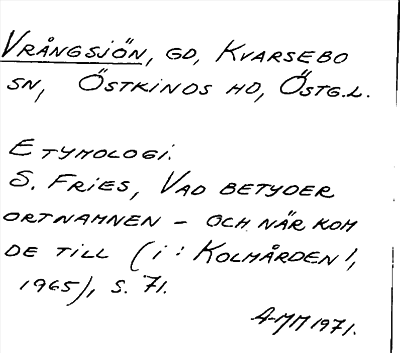 VRÅNGSJÖN, GD, KVARSEBO
SN, ÖSTKINDS HD, ÖSTG.L.
ETYMOLOGI.
S. FRIES, VAD BETYDER
ORTNAMNEN – OCH NÄR KOM
DE TILL (i: KOLMÅRDEN 1,
1965), S. 71.
A-MM 1971.